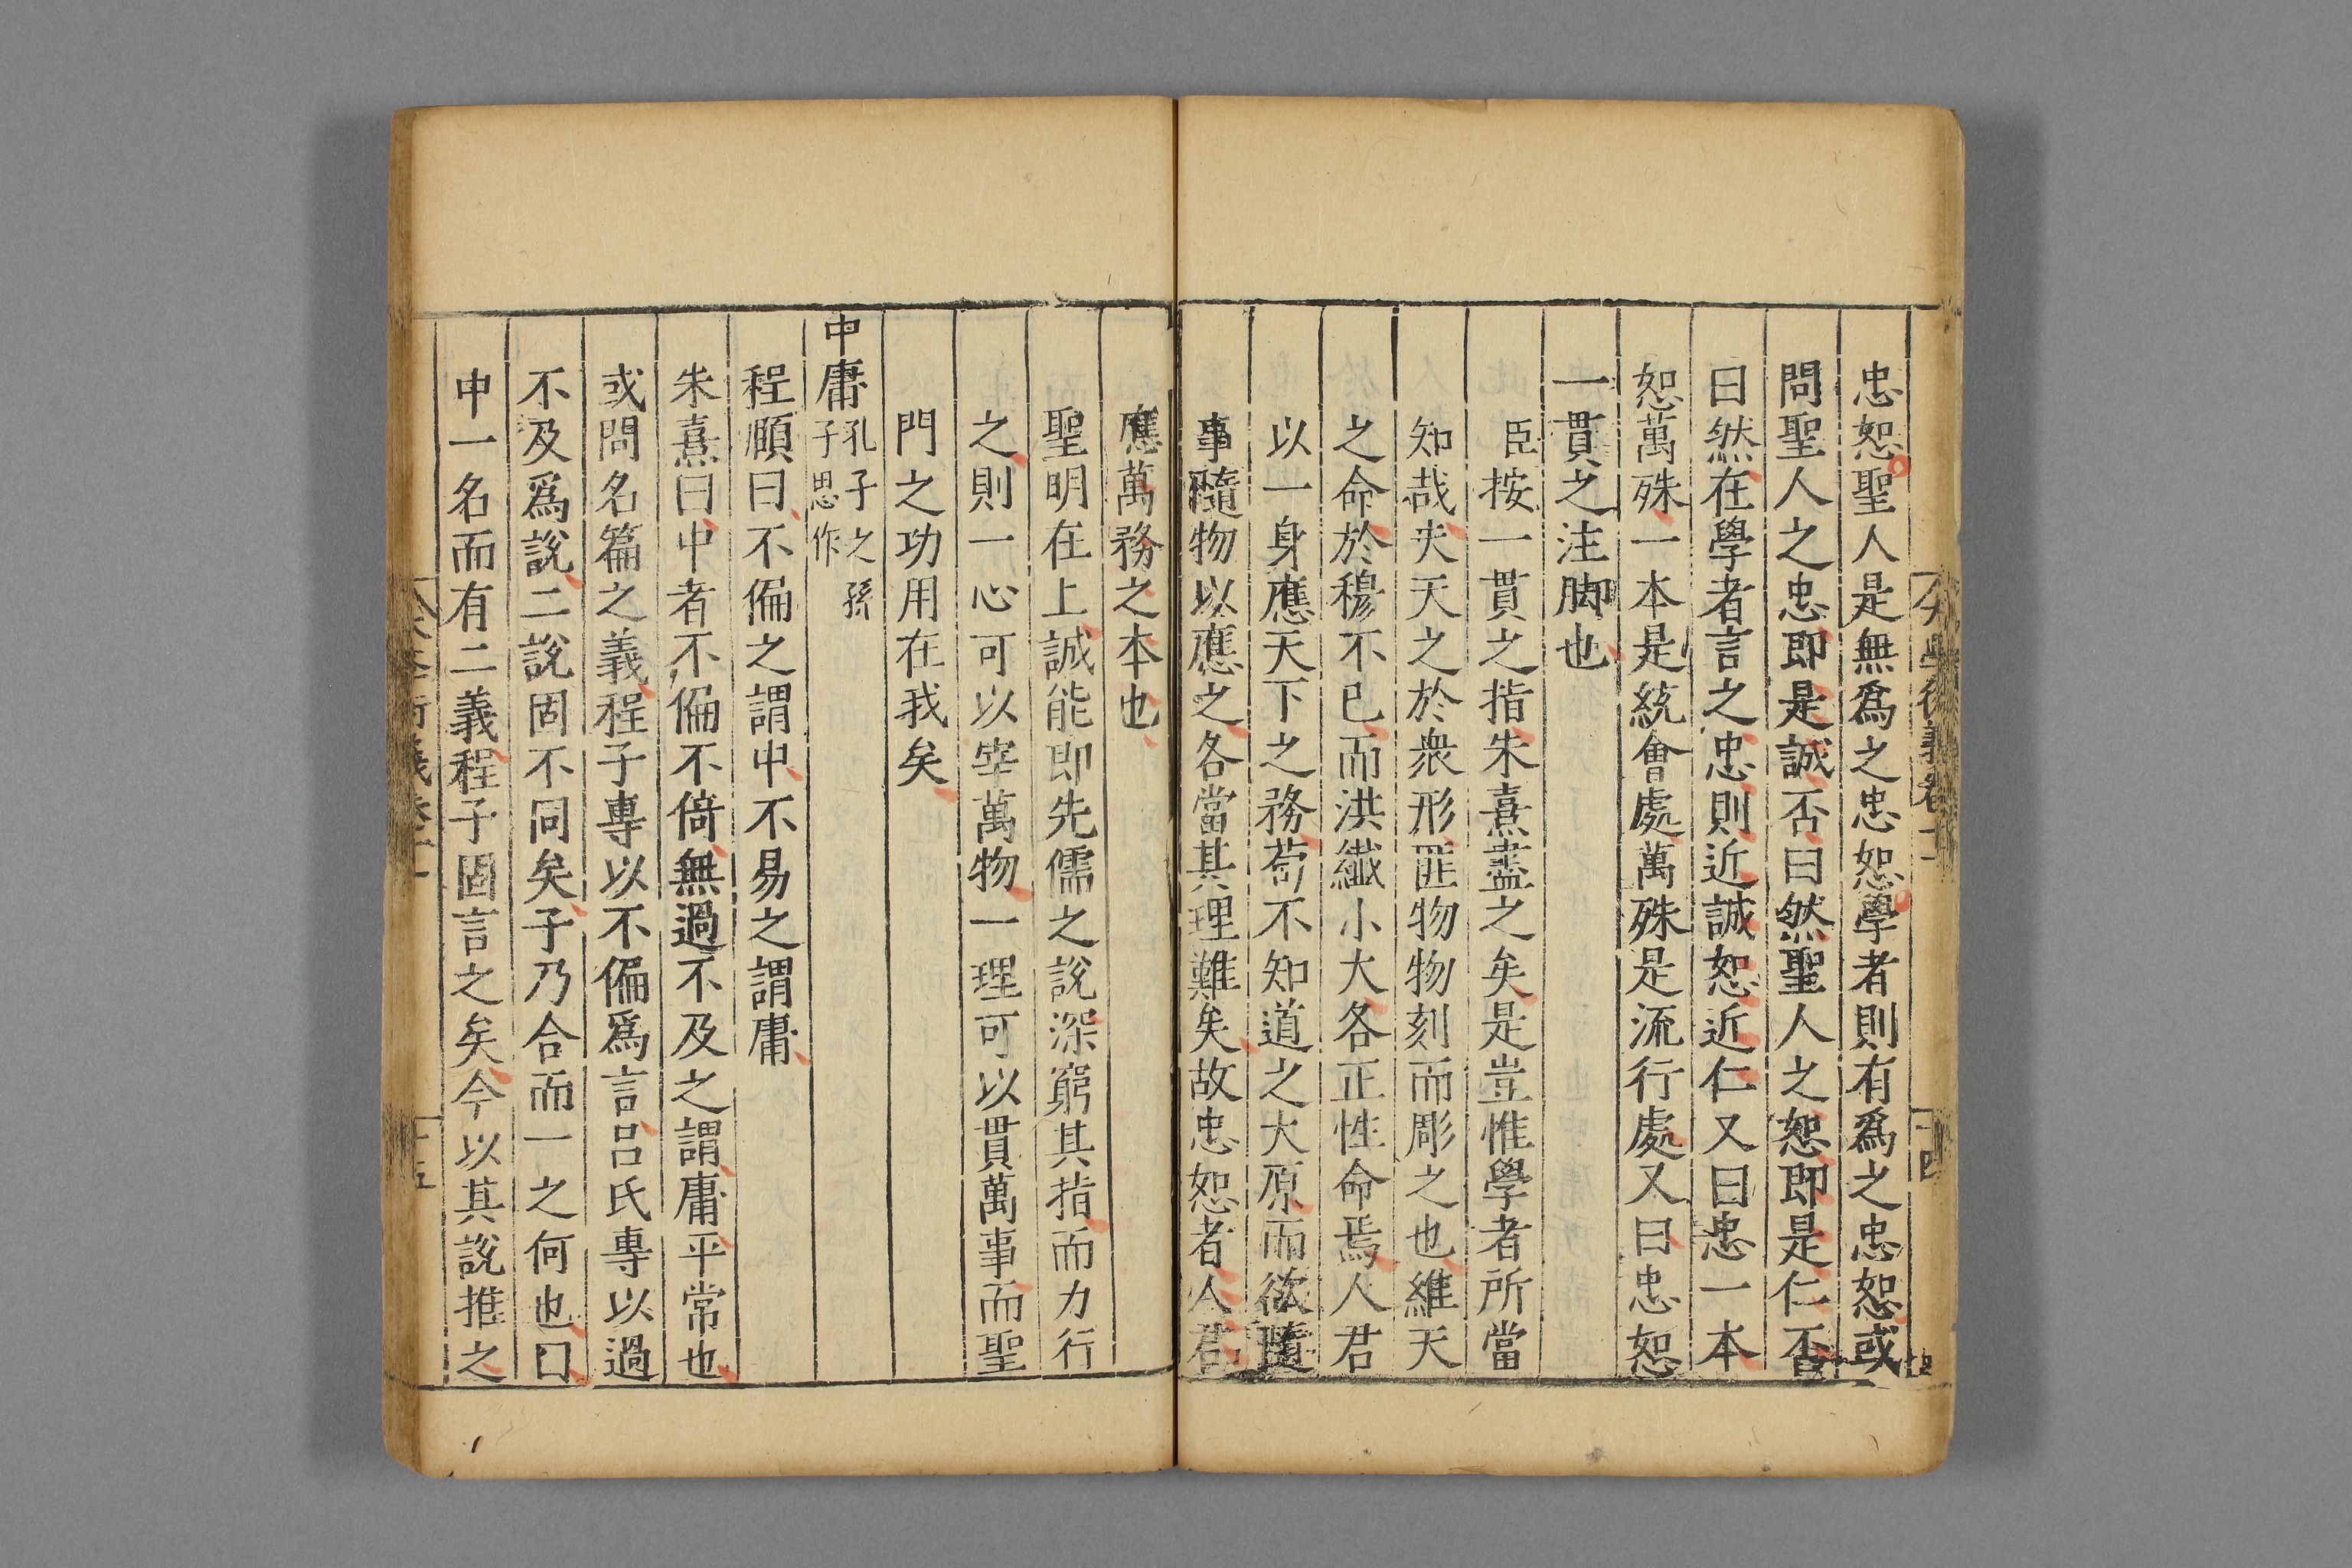 忠恕聖人是無爲之忠恕學者則有爲之忠恕或
問聖人之忠即是誠否曰然聖人之恕即是仁否
曰然在學者言之忠則近誠恕近仁又曰忠一本
恕萬殊一本是統會處萬殊是流行處又曰忠恕
一貫之注脚也
臣按一貫之指朱熹盡之矣是豈惟學者所當
知哉夫天之於衆形匪物物刻而彫之也維天
之命於穆不已而洪纖小大各正性命焉人君
以一身應天下之務苟不知道之大原而欲隨
事隨物以應之各當其理難矣故忠恕者人君
應萬務之本也
聖明在上誠能即先儒之說深窮其指而力行
之則一心可以宰萬物一理可以貫萬事而聖
門之功用在我矣
中庸孔子之孫子思作
程頤曰不偏之謂中不易之謂庸
朱熹曰中者不偏不倚無過不及之謂庸平常也
或問名篇之義程子專以不偏爲言呂氏專以過
不及爲說二說固不同矣子乃合而一之何也曰
中一名而有二義程子固言之矣今以其說推之